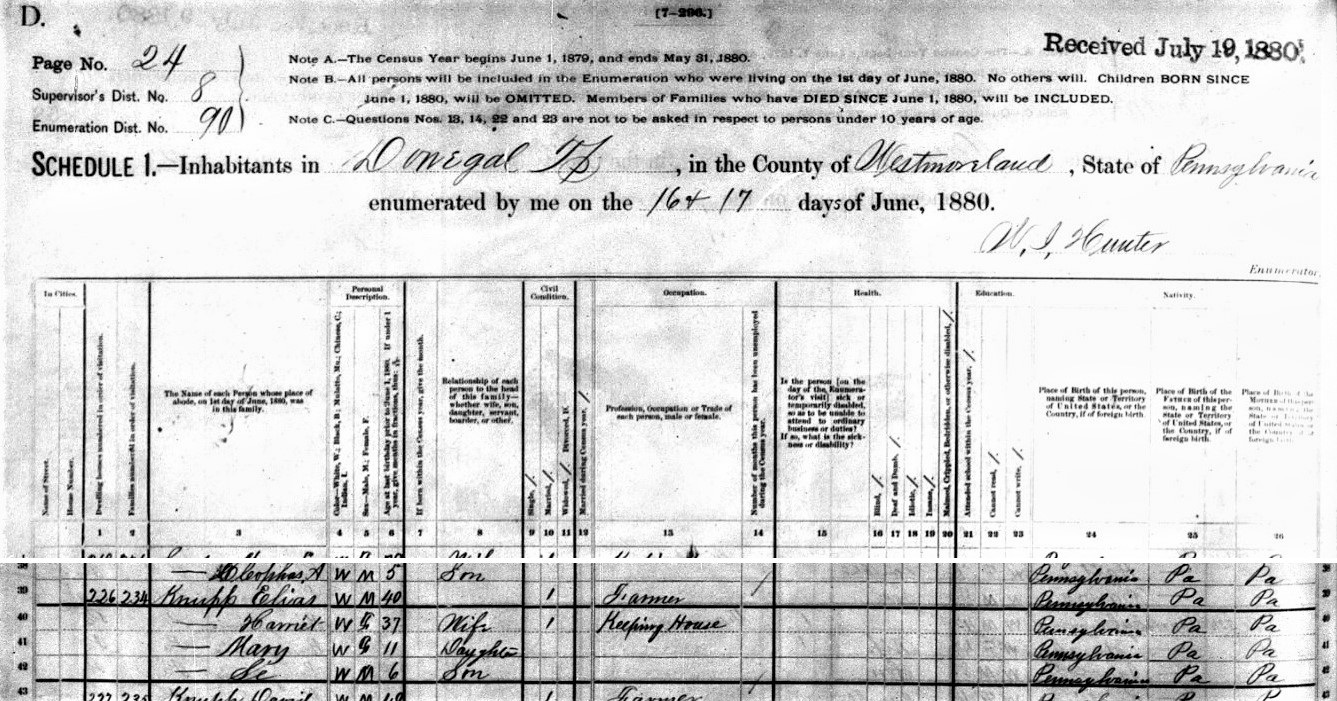 D.
[7-296.]
Received July 19, 1880.
Page No. 24
Supervisor's Dist. No. 8
Enumeration Dist. No. 90
Note A.—The Census Year begins June 1, 1879, and ends May 31, 1880.
Note B.—All persons will be included in the Enumeration who were living on the 1st day of June, 1880. No others will. Children BORN SINCE
June 1, 1880, will be OMITTED. Members of Families who have DIED SINCE June 1, 1880, will be INCLUDED.
Note C.—Questions Nos. 13, 14, 22 and 23 are not to be asked in respect to persons under 10 years of age.
SCHEDULE 1.—Inhabitants in Donegal Tp, in the County of Westmoreland, State of Pennsylvania
enumerated by me on the 16 & 17 days of June, 1880.
W. I. Hunter
Enumerator.
In Cities.
Personal Description.
Civil Condition.
Occupation.
Health.
Education.
Nativity.
Name of Street.
House Number.
Dwelling houses numbered in order of visitation.
Families numbered in order of visitation.
The Name of each Person whose place of abode, on 1st day of June, 1880, was in this family.
Color—White, W.; Black, B.; Mulatto, Mu.; Chinese, C.; Indian, I.
Sex—Male, M.; Female, F.
Age at last birthday prior to June 1, 1880. If under 1 year, give months in fractions, thus:
If born within the Census year, give the month.
Relationship of each person to the head of this family—whether wife, son, daughter, servant, boarder, or other.
Single, /.
Married, /.
Widowed, /. Divorced, D.
Married during Census year, /.
Profession, Occupation or Trade of each person, male or female.
Number of months this person has been unemployed during the Census year.
Is the person [on the day of the Enumerator's visit] sick or temporarily disabled, so as to be unable to attend to ordinary business or duties? If so, what is the sickness or disability?
Blind, /.
Deaf and Dumb, /.
Idiotic, /.
Insane, /.
Maimed, Crippled, Bedridden, or otherwise disabled, /.
Attended school within the Census year, /.
Cannot read, /.
Cannot write, /.
Place of Birth of this person, naming State or Territory of United States, or the Country, if of foreign birth.
Place of Birth of the FATHER of this person, naming the State or Territory of United States, or the Country, if of foreign birth.
Place of Birth of the MOTHER of this person, naming the State or Territory of United States, or the Country, if of foreign birth.
1 2 3 4 5 6 7 8 9 10 11 12 13 14 15 16 17 18 19 20 21 22 23 24 25 26
38 — Cleophas, A W M 5 Son / Pennsylvania Pa Pa 38
39 226 234 Knupp Elias W M 40 1 Farmer Pennsylvania Pa Pa 39
40 — Harriet W F 37 Wife 1 Keeping House Pennsylvania Pa Pa 40
41 — Mary W F 11 Daughter Pennsylvania Pa Pa 41
42 — W M 6 Son / Pennsylvania Pa Pa 42
43 227 235 Knupp David W M Farmer 43